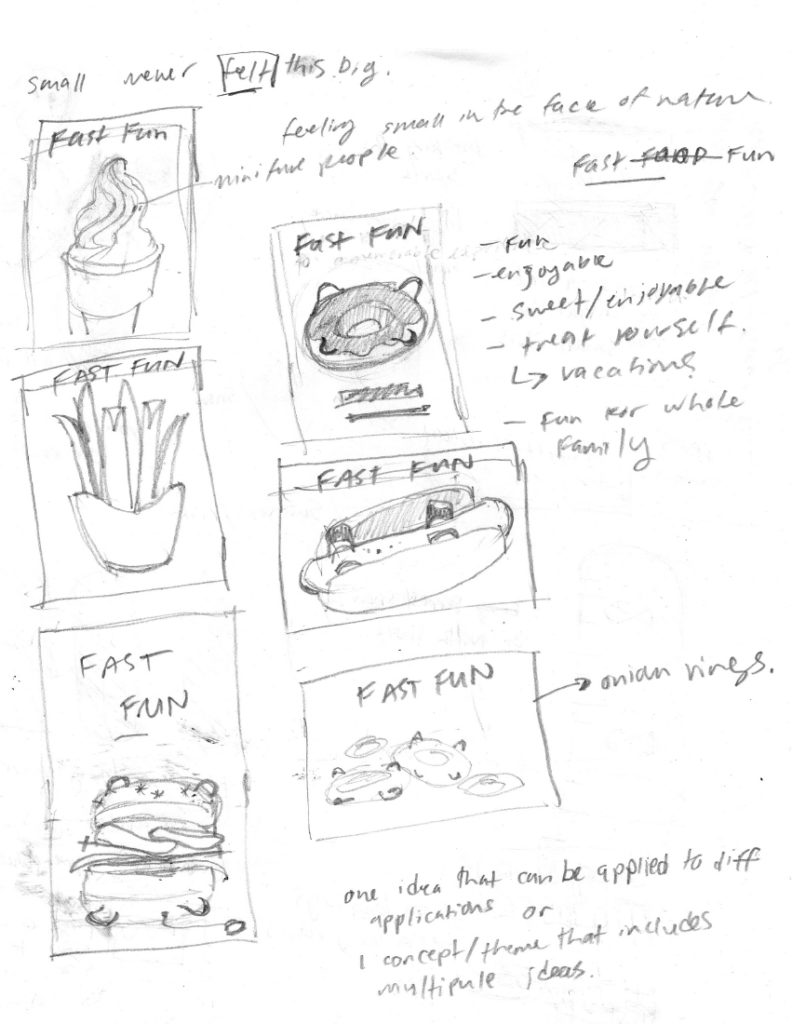 small never felt this big.
feeling small in the face of nature
FAST FUN
miniture people
FAST FOOD FUN
FAST FUN
- FUN
- enjoyable
- sweet/enjoyable
- treat yourself.
↳ vacations
- FUN FOR whole
family
FAST FUN
FAST FUN
FAST
FUN
FAST FUN
onion rings.
one idea that can be applied to diff
applications or
1 concept/theme that includes
multipule ideas.